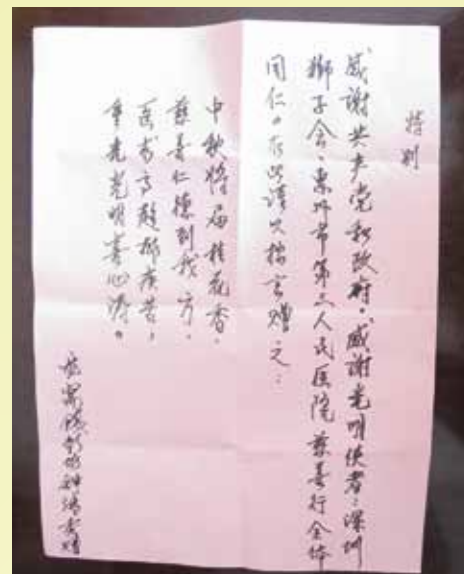 特别
感谢共产党和政府。感谢光明使者:深圳
狮子会、惠州市第三人民医院慈善行全体
同仁。在此谨以拙言赠之:
中秋将届桂花香,
慈善仁德到我方,
医术高超除疾苦,
重光光明喜心海。